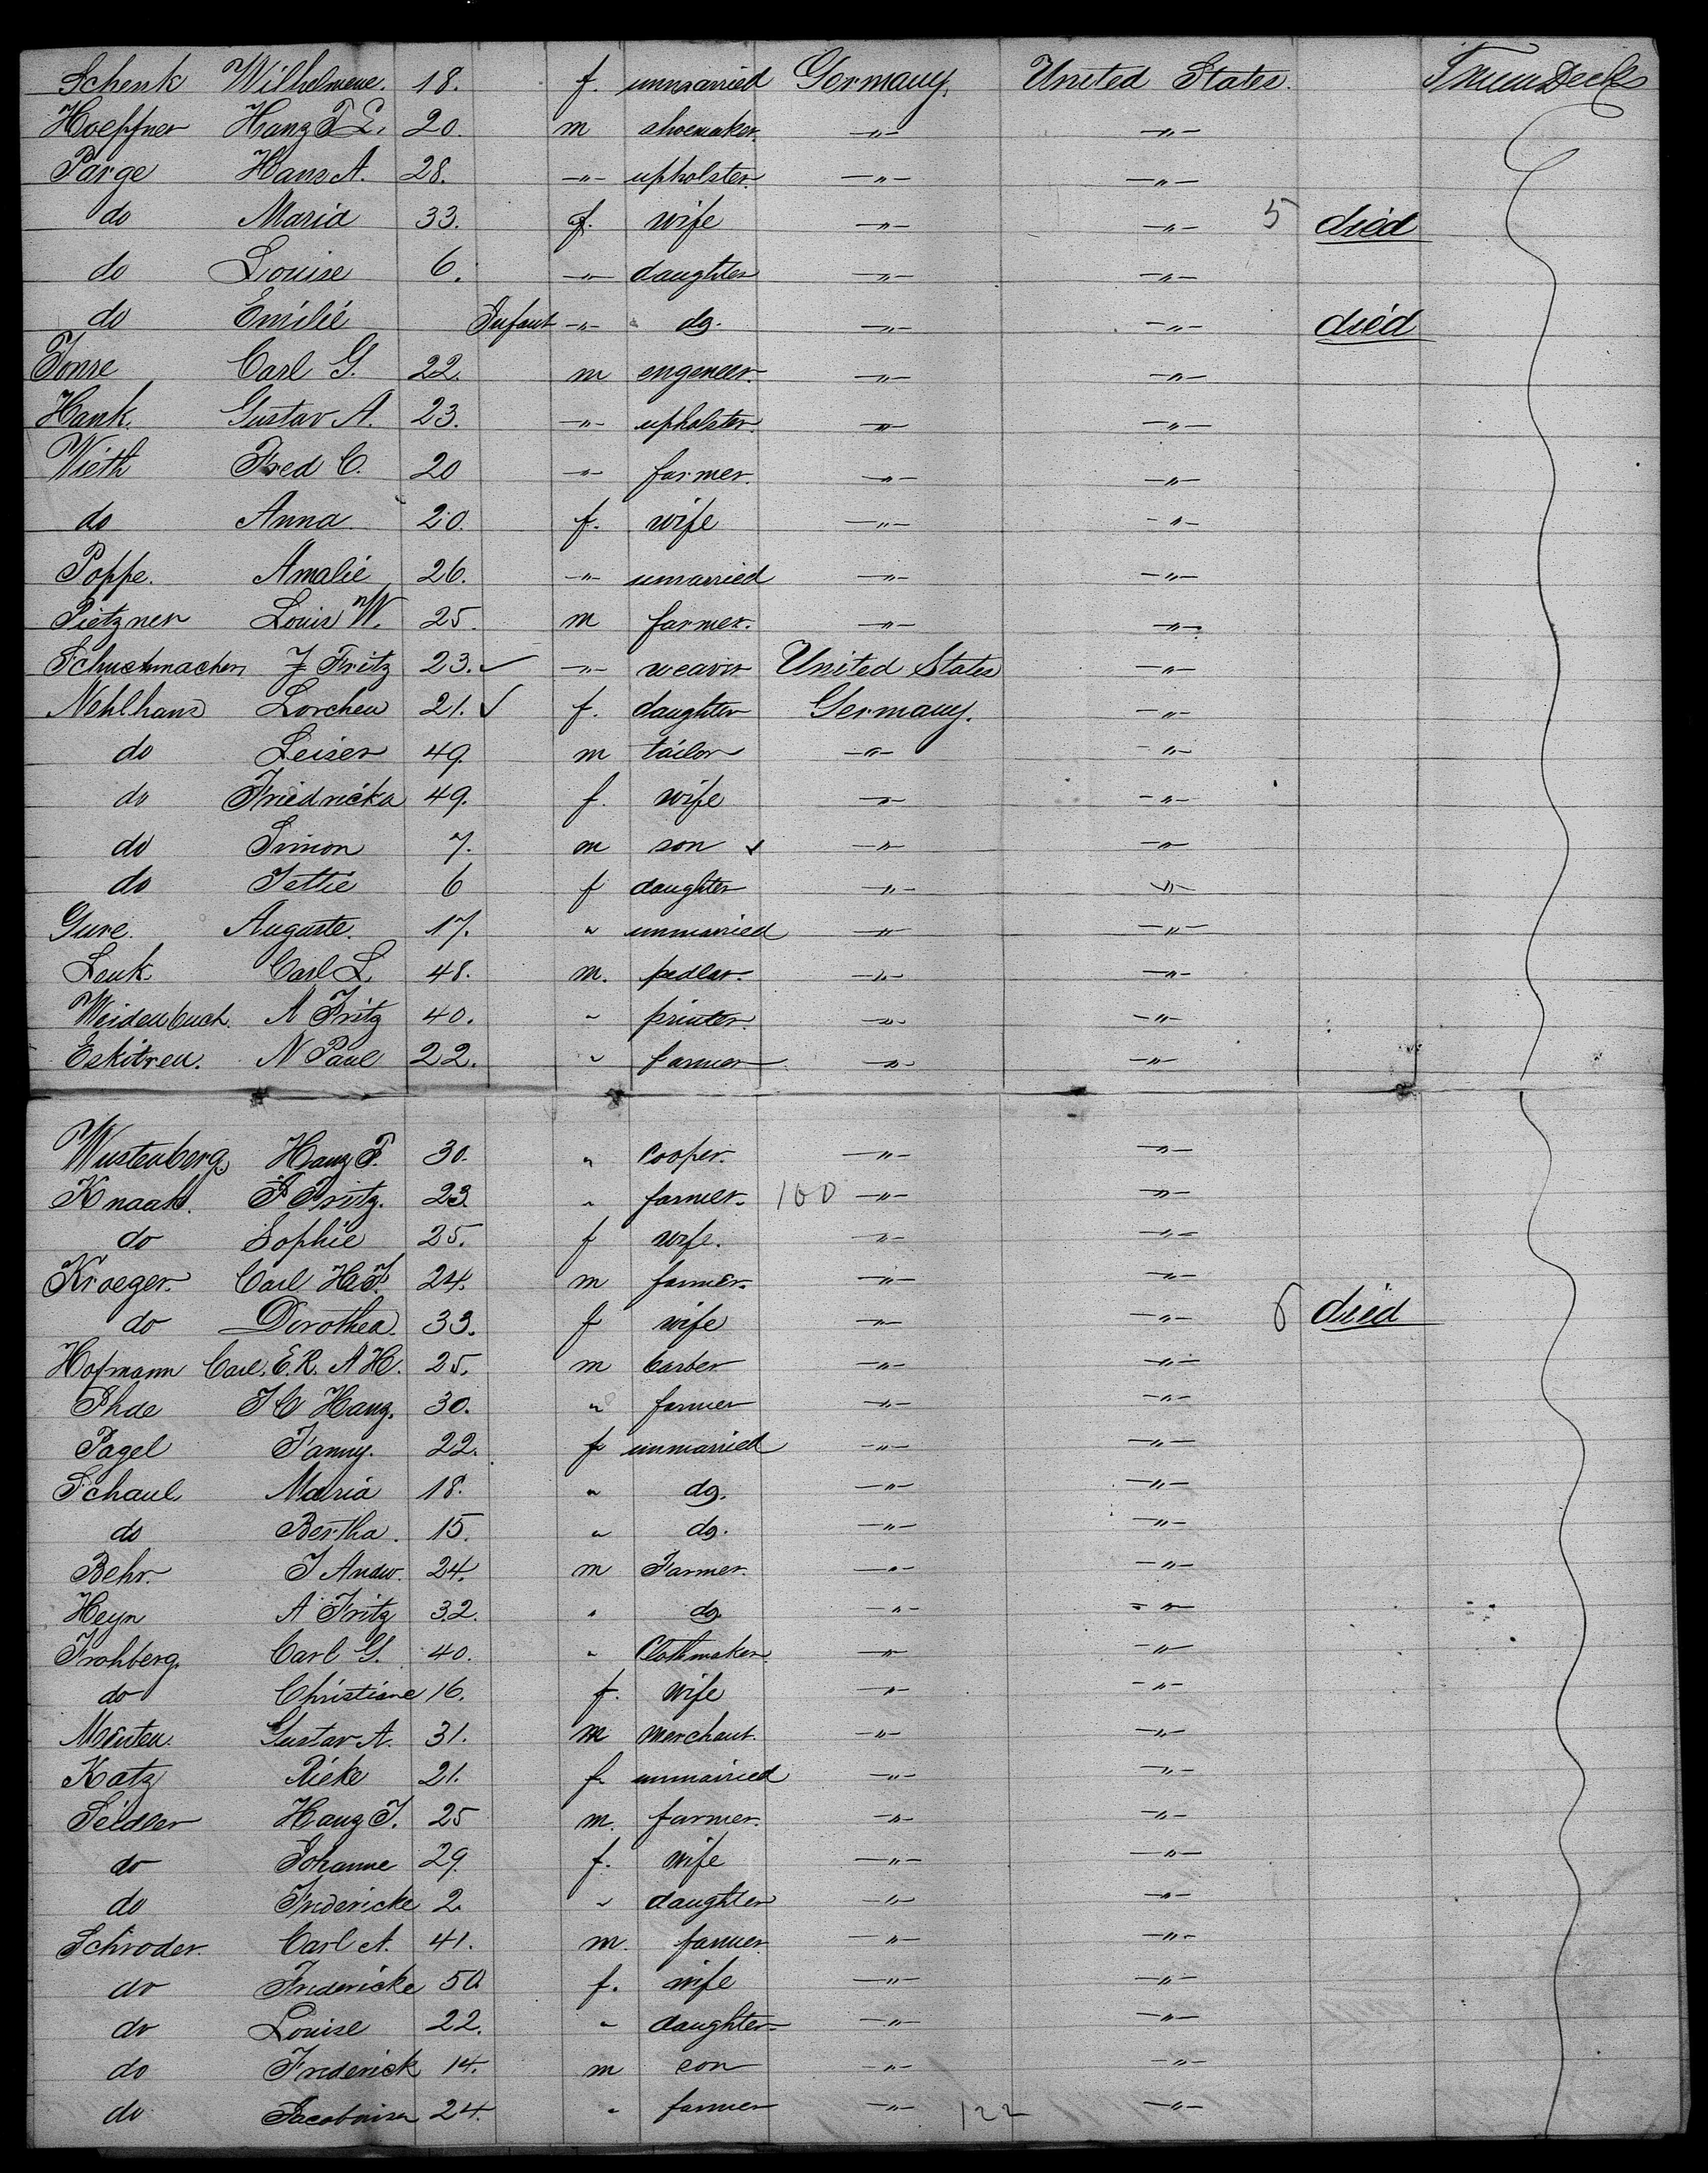 Schenk Wilhelmene. 18. f. unmarried Germany. United States. Tween Decks
Hoeffner Hanz F. E. 20. m shoemaker. -"- -"-
Parge Hans A. 28. -"- upholster. -"- -"-
do Maria 33. f. wife -"- -"- 5 died
do Louise 6. -"- daughter -"- -"-
do Emilie Infant -"- do. -"- -"- died
Tonse Carl G. 22. m engeneer. -"- -"-
Hank. Gustav A. 23. -"- upholster. -"- -"-
Vieth Fred C. 20 -"- farmer. -"- -"-
do Anna 20. f. wife -"- -"-
Poppe. Amalie 26. -"- unmarried -"- -"-
Pietzner Louis W. 25. m farmer. -"- -"-
Schustmacher J Fritz 23. ✓ -"- weaver United States -"-
Nehlhans Lorchen 21. ✓ f. daughter Germany. -"-
do Leiser 49. m tailor -"- -"-
do Friedricka 49. f. wife -"- -"-
do Simon 7. m son ✓ -"- -"-
do Jettie 6 f daughter -"- -"-
Gure. Auguste. 17. " unmarried -"- -"-
Lenk. Carl L. 48. m. pedler. -"- -"-
Weidenbuch. A Fritz 40. " printer. -"- -"-
Eskitren. N Paul 22. " farmer -"- -"-
Wustenberg Hanz F. 30. " cooper. -"- -"-
Knaak. F Fritz. 23. " farmer. 160 -"- -"-
do Sophie 25. f wife. -"- -"-
Kroeger. Carl H. J. 24. m farmer. -"- -"-
do Dorothea. 33. f wife -"- -"- 6 died
Hofmann Carl. E. R. A H. 25. m barber -"- -"-
Phde J C Hanz. 30. " farmer -"- -"-
Pagel Fanny. 22. f unmarried -"- -"-
Schaul Maria 18. " do. -"- -"-
do Bertha. 15. " do. -"- -"-
Behr. J Andw. 24. m Farmer. -"- -"-
Heyn A Fritz 32. " do -"- -"-
Frohberg Carl G. 40. " Clothmaker. -"- -"-
do Christiane 16. f. wife -"- -"-
Gustav A. 31. m merchant. -"- -"-
Katz Rieke 21. f. unmarried -"- -"-
Seidler Hanz J. 25 m. farmer. -"- -"-
do Johanne 29. f. wife -"- -"-
do Fredericke 2. " daughter -"- -"-
Schroder. Carl A. 41. m. farmer. -"- -"-
do Fredericke 50. f. wife -"- -"-
do Louise 22. " daughter -"- -"-
do Frederick 14. m son -"- -"-
do 24. " farmer -"- 122 -"-